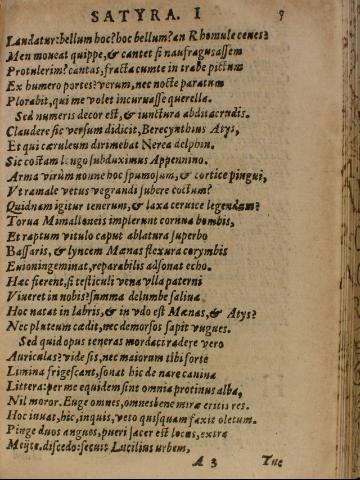 SATYRA. I 9
Laudatur: bellum hoc? hoc bellum? an Rhomule ceues?
Men moueat quippe, & cantet si naufragus assem
Protulerim? cantas, fracta cum te in trabe pictum
Ex humero portes? verum, nec nocte paratum
Plorabit, qui me volet incuruasse querella.
Sed numeris decor est, & iunctura abdita crudis.
Claudere sic versum didicit, Berecynthius Atys,
Et qui cæruleum dirimebat Nerea delphin.
Sic costam longo subduximus Appennino.
Arma virum nonne hoc spumosum, & cortice pingui,
Vt ramale vetus vegrandi subere coctum?
Quidnam igitur tenerum, & laxa ceruice legendum?
Torua Mimalloneis implerunt cornua bombis,
Et raptum vitulo caput ablatura superbo
Bassaris, & lyncem Mænas flexura corymbis
Euion ingeminat, reparabilis adsonat echo.
Hæc fierent, si testiculi vena vlla paterni
Viueret in nobis? summa delumbe saliua
Hoc natat in labris, & in vdo est Mænas, & Atys?
Nec pluteum cædit, nec demorsos sapit vngues.
Sed quid opus teneras mordaci radere vero
Auriculas? vide sis, nec maiorum tibi forte
Limina frigescant, sonat hic de nare canina
Littera: per me equidem sint omnia protinus alba,
Nil moror. Euge omnes, omnes bene miræ eritis res.
Hoc iuuat, hic, inquis, veto quisquam faxit oletum.
Pinge duos angues, pueri sacer est locus, extra
Meijte. discedo: secuit Lucilius urbem,
A 3 Tuc